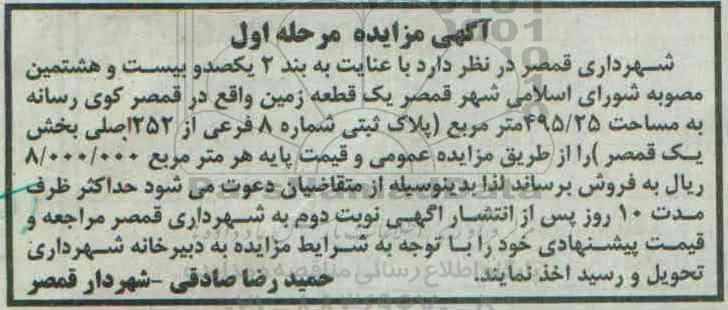 آگهی مزایده مرحله اول
شهرداری قمصر در نظر دارد با عنایت به بند ۲ یکصدو بیست و هشتمین
مصوبه شورای اسلامی شهر قمصر یک قطعه زمین واقع در قمصر کوی رسانه
به مساحت ۴۹۵/۲۵متر مربع (پلاک ثبتی شماره ۸ فرعی از ۲۵۲اصلی بخش
یک قمصر )را از طریق مزایده عمومی و قیمت پایه هر متر مربع ۸/۰۰۰/۰۰۰
ریال به فروش برساند لذا بدینوسیله از متقاضیان دعوت می شود حداکثر ظرف
مدت ۱۰ روز پس از انتشار آگهی نوبت دوم به شهرداری قمصر مراجعه و
قیمت پیشنهادی خود را با توجه به شرایط مزایده به دبیرخانه شهرداری
تحویل و رسید اخذ نمایند.
حمید رضا صادقی -شهردار قمصر